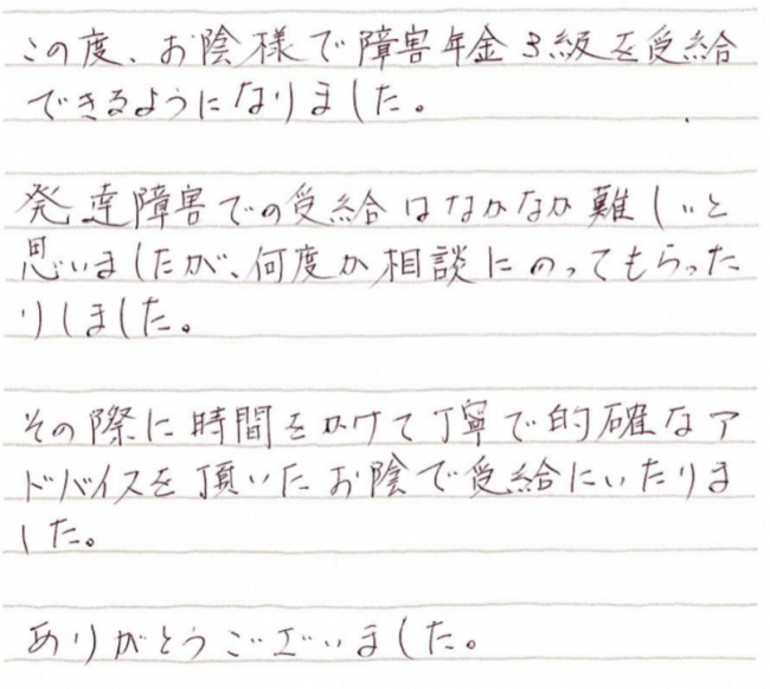 この度、お陰様で障害年金3級を受給
できるようになりました。
発達障害での受給はなかなか難しいと
思いましたが、何度か相談にのってもらった
りしました。
その際に時間をかけて丁寧で的確なア
ドバイスを頂いたお陰で受給にいたりま
した。
ありがとうございました。